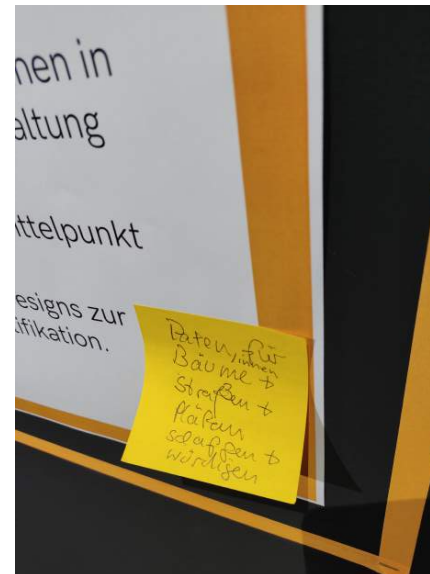 nen in
altung
ttelpunkt
esigns zur
tifikation.
Paten, für
innen
Bäume +
Straßen +
Plätzen
schaffen +
würdigen